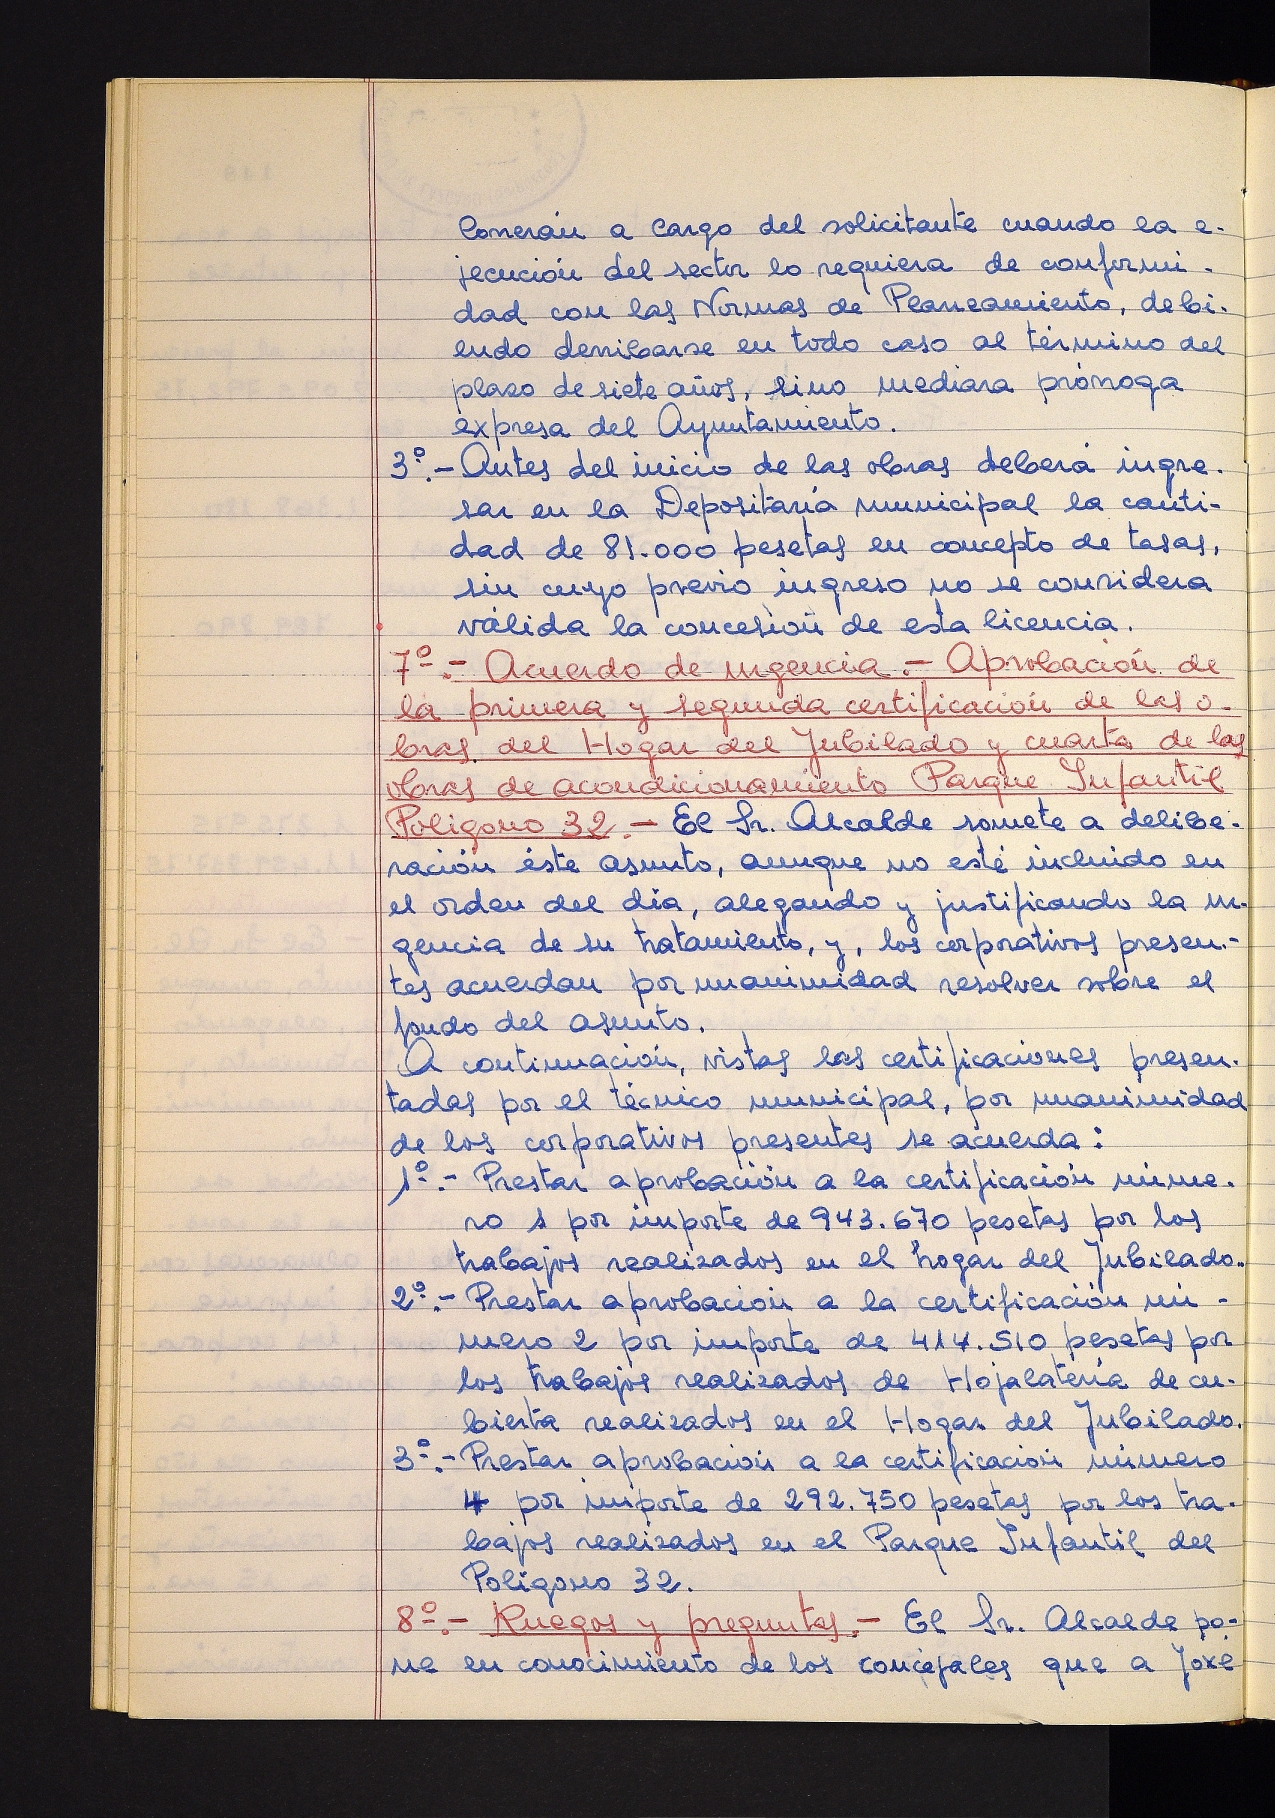 lonerán a cargo del solicitante cuando la e-
jecución del sector lo requiera de conformi-
dad con las Normas de Planeamiento, debi-
endo derribarse en todo caso al término del
plazo de siete años, sino mediara prórroga
expresa del Ayuntamiento.
3º.- Antes del inicio de las obras deberá ingre-
sar en la Depositaría municipal la canti-
dad de 81.000 pesetas en concepto de tasas,
sin cuyo previo ingreso no se considera
válida la concesión de esta licencia.
7º.- Acuerdo de urgencia.- Aprobación de
la primera y segunda certificación de las o-
bras del Hogar del Jubilado y cuarta de las
obras de acondicionamiento Parque Infantil
Poligono 32.- El Sr. Alcalde somete a delibe-
ración éste asunto, aunque no esté incluido en
el orden del día, alegando y justificando la ur-
gencia de su tratamiento, y, los corporativos presen-
tes acuerdan por unanimidad resolver sobre el
fondo del asunto.
A continuación, vistas las certificaciones presen-
tadas por el técnico municipal, por unanimidad
de los corporativos presentes se acuerda:
1º.- Prestar aprobación a la certificación núme-
ro 1 por importe de 943.670 pesetas por los
trabajos realizados en el hogar del Jubilado.
2º.- Prestar aprobación a la certificación nú-
mero 2 por importe de 414.510 pesetas por
los trabajos realizados de Hojalatería de cu-
bierta realizados en el Hogar del Jubilado.
3º.- Prestar aprobación a la certificación número
4 por importe de 292.750 pesetas por los tra-
bajos realizados en el Parque Infantil del
Poligono 32.
8º.- Ruegos y preguntas.- El Sr. Alcalde po-
ne en conocimiento de los concejales que a Joxe